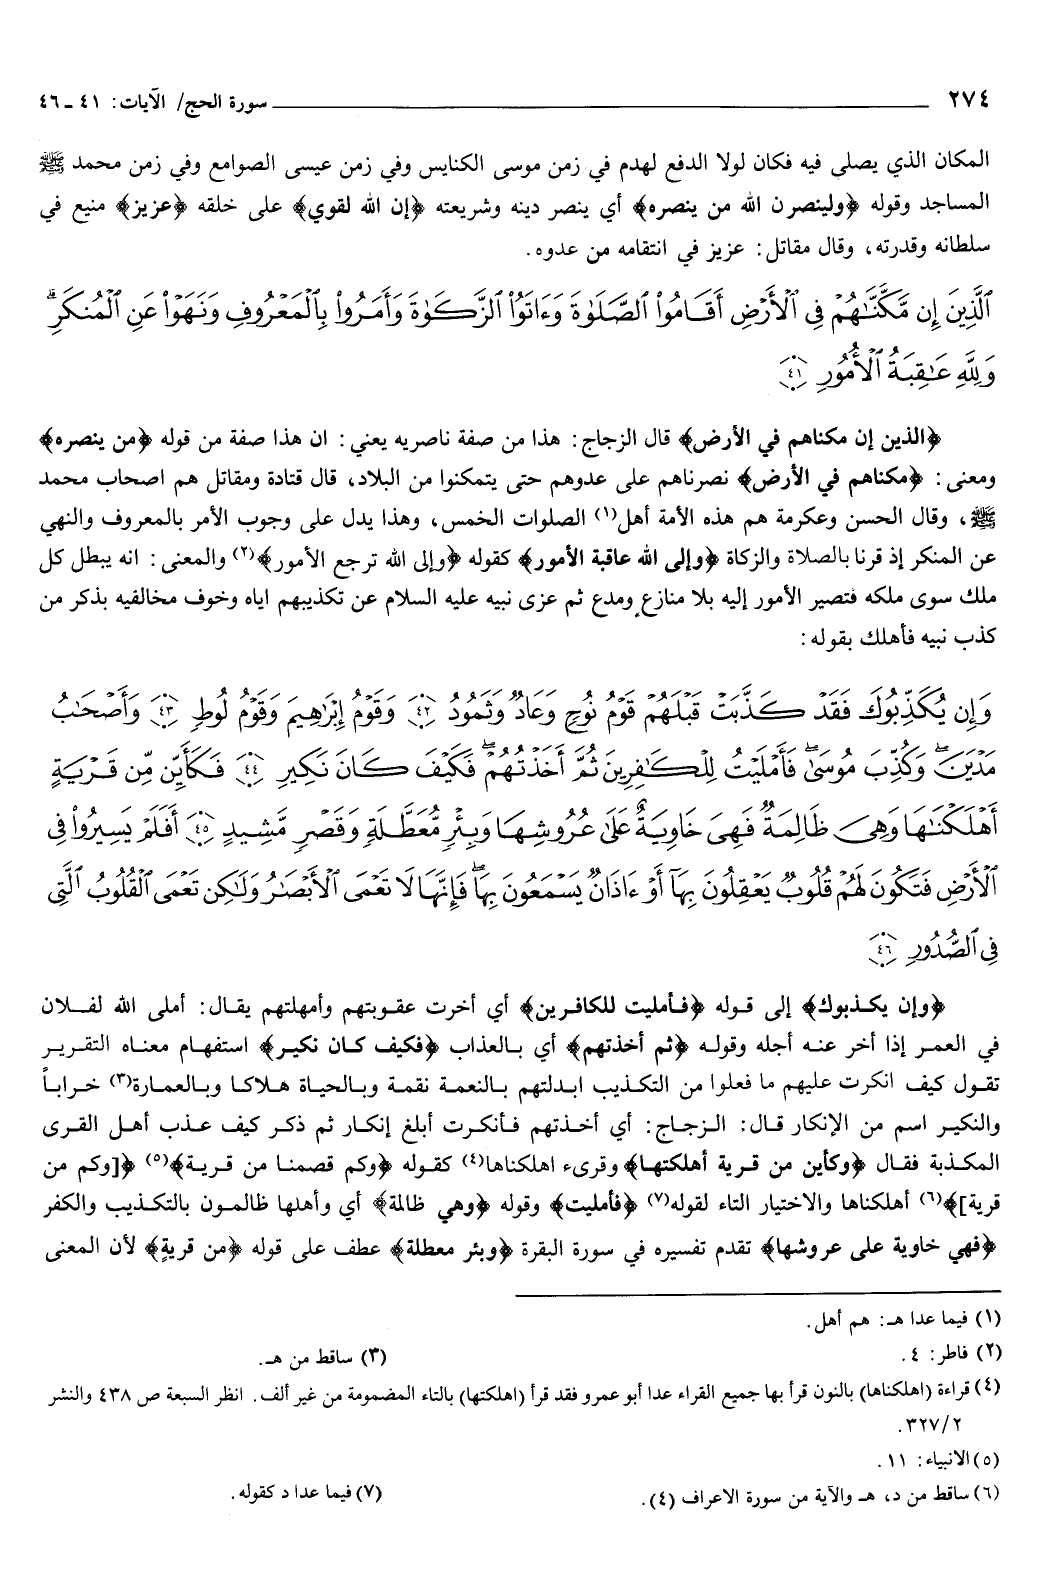 ٢٧٤ سورة الحج/ الآيات: ٤١ ـ ٤٦
المكان الذي يصلى فيه فكان لولا الدفع لهدم في زمن موسى الكنايس وفي زمن عيسى الصوامع وفي زمن محمد ﷺ
المساجد وقوله ﴿ولينصرن الله من ينصره﴾ أي ينصر دينه وشريعته ﴿إن الله لقوي﴾ على خلقه ﴿عزيز﴾ منيع في
سلطانه وقدرته، وقال مقاتل: عزيز في انتقامه من عدوه.
ٱلَّذِينَ إِن مَّكَّنَّـٰهُمْ فِى ٱلْأَرْضِ أَقَامُوا۟ ٱلصَّلَوٰةَ وَءَاتَوُا۟ ٱلزَّكَوٰةَ وَأَمَرُوا۟ بِٱلْمَعْرُوفِ وَنَهَوْا۟ عَنِ ٱلْمُنكَرِ ۗ
وَلِلَّهِ عَـٰقِبَةُ ٱلْأُمُورِ ٤١
﴿الذين إن مكناهم في الأرض﴾ قال الزجاج: هذا من صفة ناصريه يعني: ان هذا صفة من قوله ﴿من ينصره﴾
ومعنى: ﴿مكناهم في الأرض﴾ نصرناهم على عدوهم حتى يتمكنوا من البلاد، قال قتادة ومقاتل هم اصحاب محمد
ﷺ، وقال الحسن وعكرمة هم هذه الأمة أهل(١) الصلوات الخمس، وهذا يدل على وجوب الأمر بالمعروف والنهي
عن المنكر إذ قرنا بالصلاة والزكاة ﴿وإلى الله عاقبة الأمور﴾ كقوله ﴿وإلى الله ترجع الأمور﴾(٢) والمعنى: انه يبطل كل
ملك سوى ملكه فتصير الأمور إليه بلا منازع ومدع ثم عزى نبيه عليه السلام عن تكذيبهم اياه وخوف مخالفيه بذكر من
كذب نبيه فأهلك بقوله:
وَإِن يُكَذِّبُوكَ فَقَدْ كَذَّبَتْ قَبْلَهُمْ قَوْمُ نُوحٍ وَعَادٌ وَثَمُودُ ٤٢ وَقَوْمُ إِبْرَٰهِيمَ وَقَوْمُ لُوطٍ ٤٣ وَأَصْحَـٰبُ
مَدْيَنَ ۖ وَكُذِّبَ مُوسَىٰ فَأَمْلَيْتُ لِلْكَـٰفِرِينَ ثُمَّ أَخَذْتُهُمْ ۖ فَكَيْفَ كَانَ نَكِيرِ ٤٤ فَكَأَيِّن مِّن قَرْيَةٍ
أَهْلَكْنَـٰهَا وَهِىَ ظَالِمَةٌ فَهِىَ خَاوِيَةٌ عَلَىٰ عُرُوشِهَا وَبِئْرٍ مُّعَطَّلَةٍ وَقَصْرٍ مَّشِيدٍ ٤٥ أَفَلَمْ يَسِيرُوا۟ فِى
ٱلْأَرْضِ فَتَكُونَ لَهُمْ قُلُوبٌ يَعْقِلُونَ بِهَآ أَوْ ءَاذَانٌ يَسْمَعُونَ بِهَا ۖ فَإِنَّهَا لَا تَعْمَى ٱلْأَبْصَـٰرُ وَلَـٰكِن تَعْمَى ٱلْقُلُوبُ ٱلَّتِى
فِى ٱلصُّدُورِ ٤٦
﴿وإن يكذبوك﴾ إلى قوله ﴿فأمليت للكافرين﴾ أي أخرت عقوبتهم وأمهلتهم يقال: أملى الله لفلان
في العمر إذا أخر عنه أجله وقوله ﴿ثم أخذتهم﴾ أي بالعذاب ﴿فكيف كان نكير﴾ استفهام معناه التقرير
تقول كيف انكرت عليهم ما فعلوا من التكذيب ابدلتهم بالنعمة نقمة وبالحياة هلاكا وبالعمارة(٣) خراباً
والنكير اسم من الإنكار قال: الزجاج: أي أخذتهم فأنكرت أبلغ إنكار ثم ذكر كيف عذب أهل القرى
المكذبة فقال ﴿وكأين من قرية أهلكتها﴾ وقرىء اهلكناها(٤) كقوله ﴿وكم قصمنا من قرية﴾(٥) ﴿[وكم من
قرية]﴾(٦) أهلكناها والاختيار التاء لقوله(٧) ﴿فأمليت﴾ وقوله ﴿وهي ظالمة﴾ أي وأهلها ظالمون بالتكذيب والكفر
﴿فهي خاوية على عروشها﴾ تقدم تفسيره في سورة البقرة ﴿وبئر معطلة﴾ عطف على قوله ﴿من قريةٍ﴾ لأن المعنى
(١) فيما عدا هـ: هم أهل.
(٢) فاطر: ٤. (٣) ساقط من هـ.
(٤) قراءة (اهلكناها) بالنون قرأ بها جميع القراء عدا أبو عمرو فقد قرأ (اهلكتها) بالتاء المضمومة من غير ألف. انظر السبعة ص ٤٣٨ والنشر
٣٢٧/٢.
(٥) الانبياء: ١١.
(٦) ساقط من د، هـ والآية من سورة الاعراف (٤). (٧) فيما عدا د كقوله.